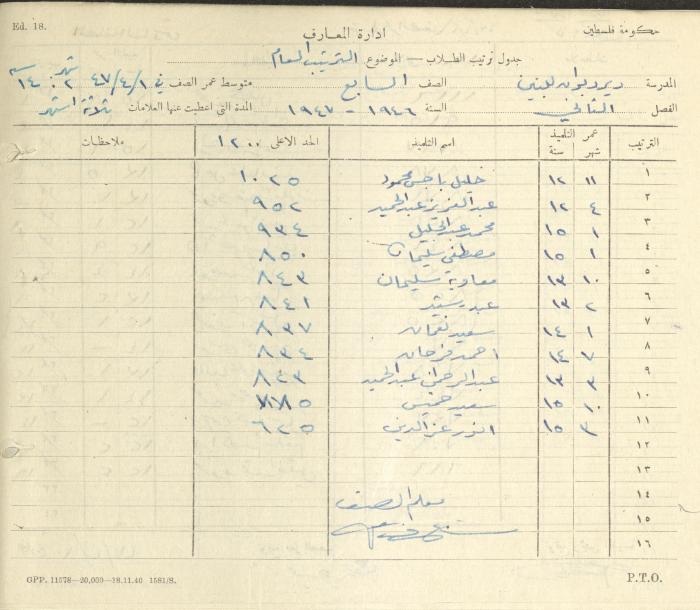 Ed. 18.
حكومة فلسطين
ادارة المعارف
جدول ترتيب الطلاب — الموضوع الترتيب العام
المدرسة ديرديوان للبنين الصف السابع متوسط عمر الصف في ٤٧/٤/١ شهر ٢ سنة ١٤
الفصل الثاني السنة ١٩٤٦ - ١٩٤٧ المدة التي اعطيت عنها العلامات ثلاثة اشهر
الترتيب عمر التلميذ شهر سنة اسم التلميذ الحد الاعلى ١٢٠٠ ملاحظات
١ ١١ ١٢ خليل باجس محمود ١٠٢٥
٢ ٤ ١٢ عبد العزيز عبد الحميد ٩٥٢
٣ ١ ١٥ محمد عبد الجليل ٩٣٤
٤ ١ ١٥ مصطفى سليمان ٨٥٠
٥ ١٠ ١٣ معاوية سليمان ٨٤٣
٦ ٢ ١٣ عبد رشيد ٨٤١
٧ ١ ١٤ سعيد نعمان ٨٣٧
٨ ٧ ١٤ احمد فرحان ٨٣٤
٩ ٣ ١٣ عبد الرحمن عبد الحميد ٨٢٣
١٠ ١٠ ١٥ سعيد خميس ٧٧٥
١١ ٣ ١٥ انور عز الدين ٦٢٥
١٢
١٣
١٤
معلم الصف
١٥
١٦
GPP. 11578—20,000—18.11.40 1581/S.
P.T.O.